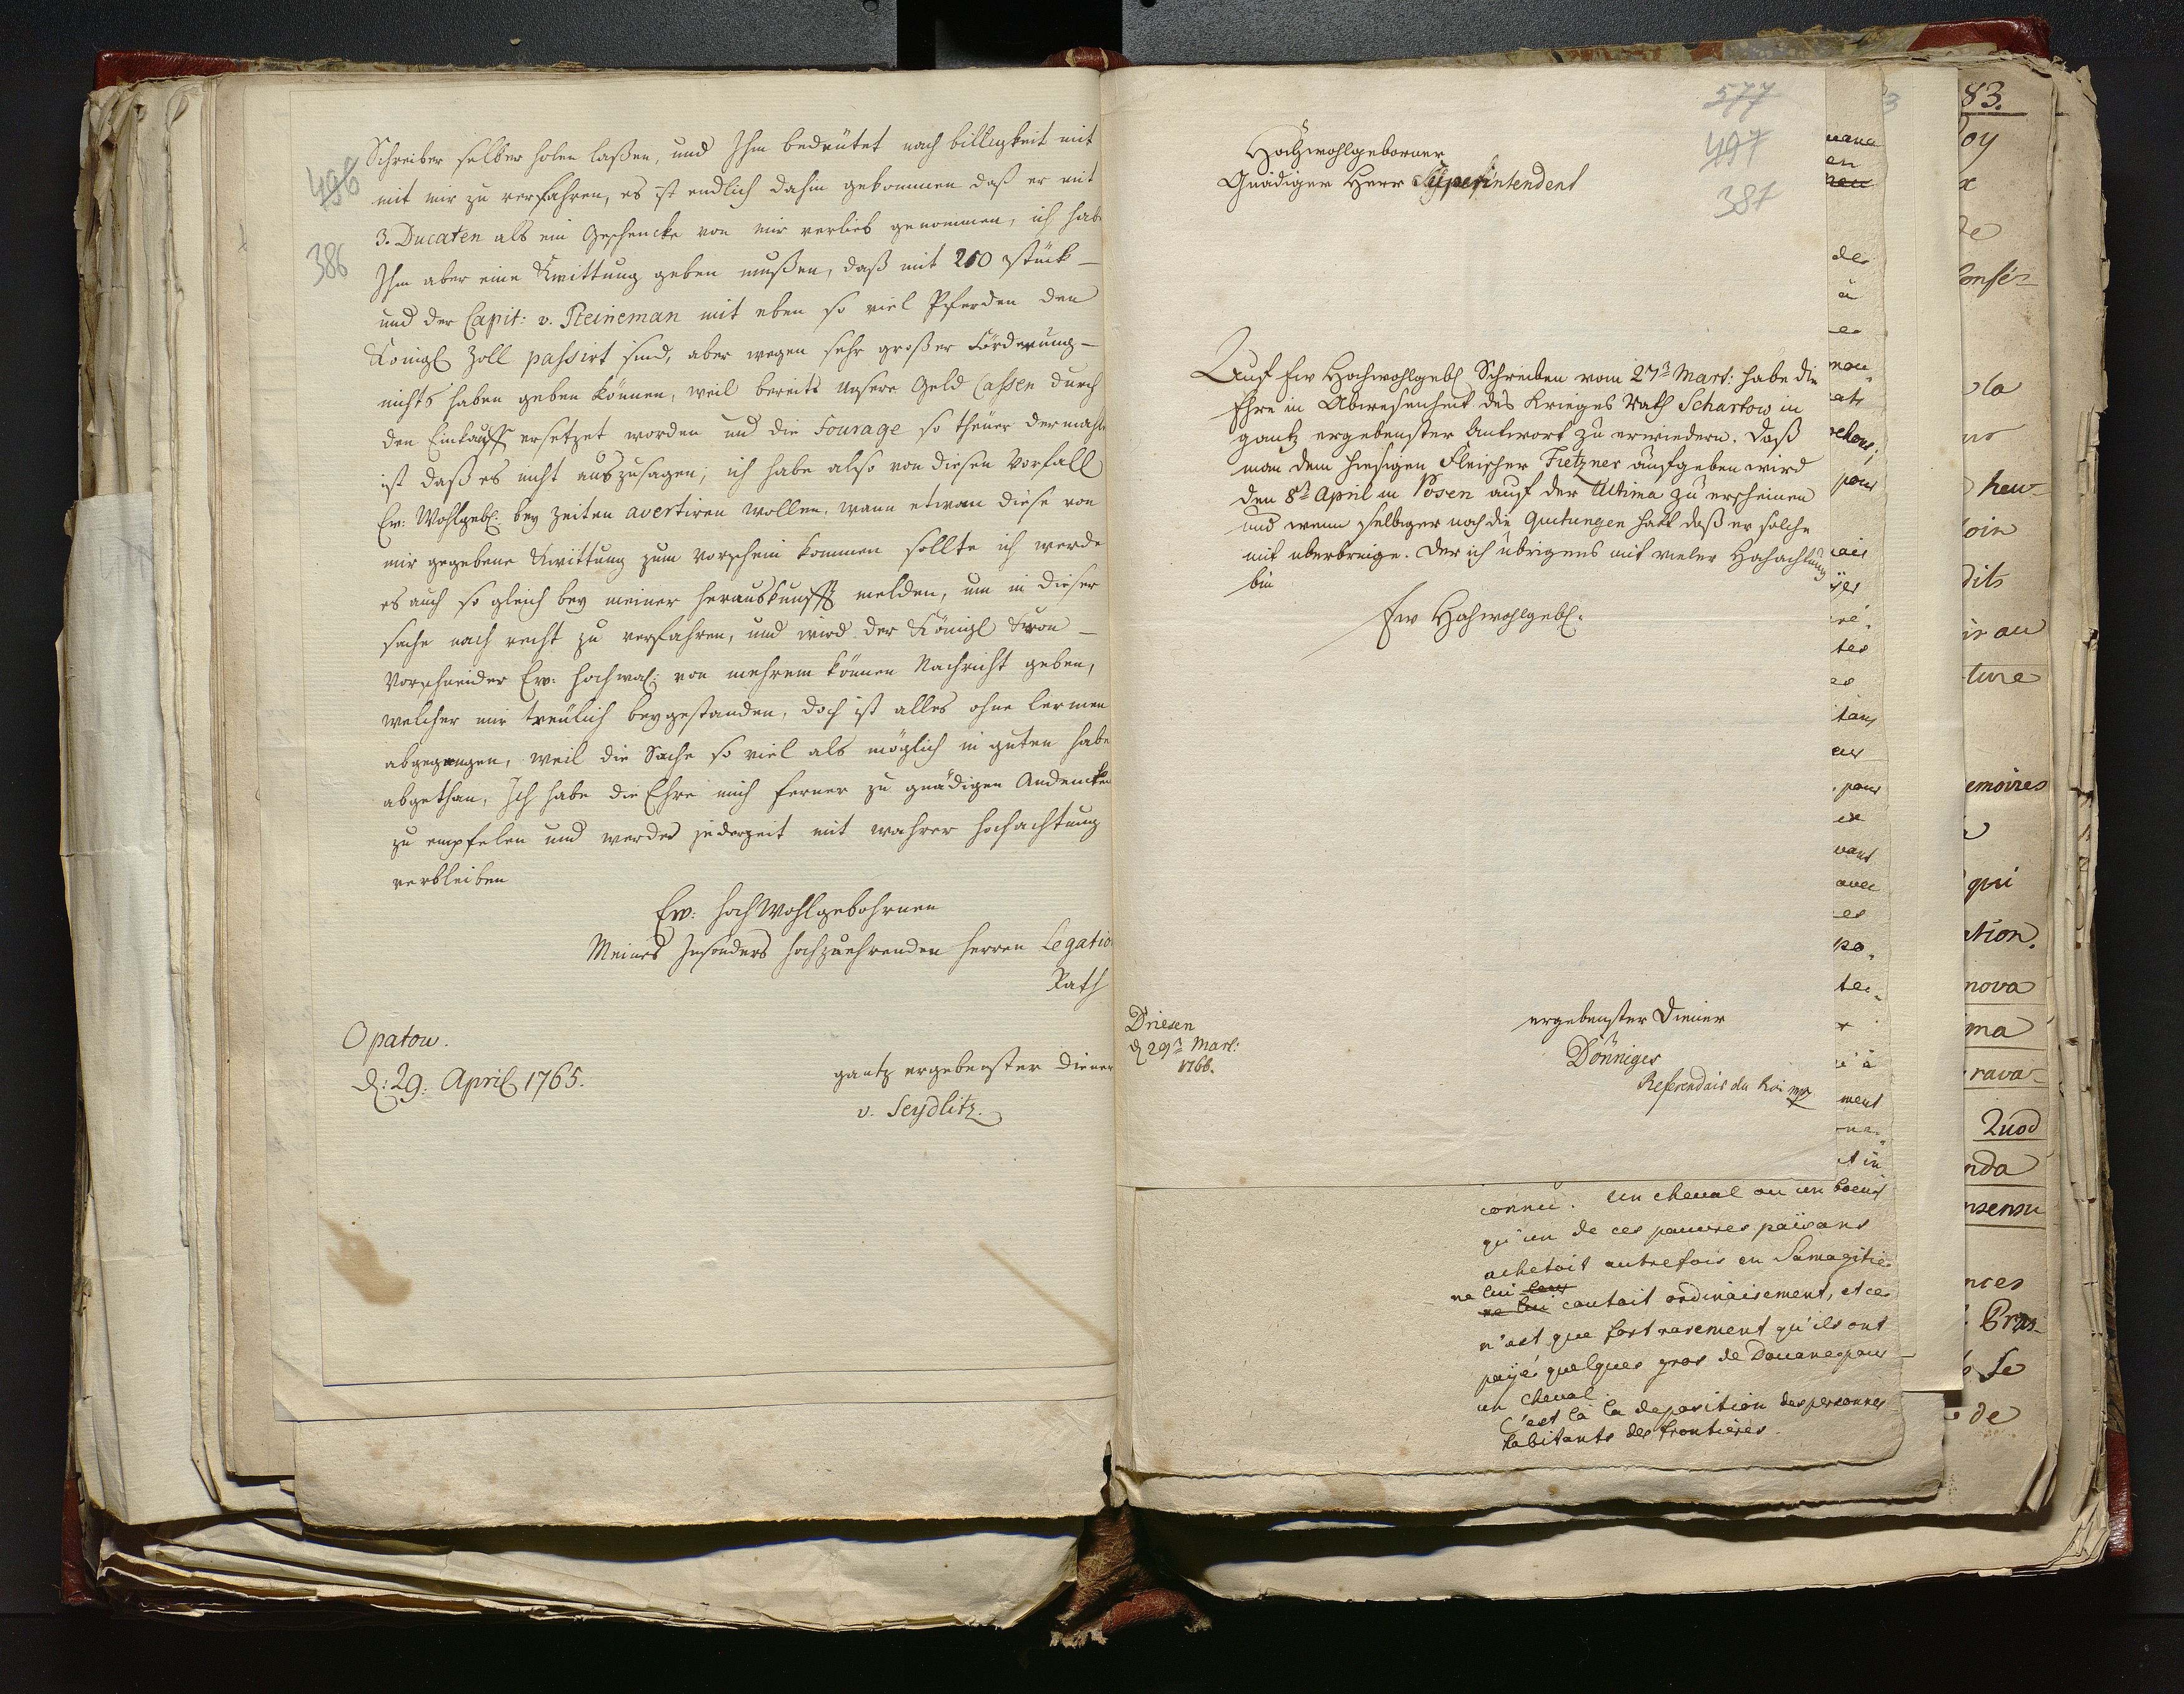 496
386
Schreiber selber holen laßen, und Ihm bedeutet nach billigkeit mit
mit mir zu verfahren, es ist endlich dahin gekommen daß er mit
3. Ducaten als ein Geschencke von mir verlieb genommen, ich habe
Ihm aber eine Kwittung geben mußen, daß mit 210 stück
und der Capit: v. Reineman mit eben so viel Pferden den
Königl Zoll passirt sind, aber wegen sehr großer Förderung
nichts haben geben können, weil bereits unsere Geld Cassen durch
den Einkauff ersetzet worden und die Fourage so theuer dermahl
ist daß es nicht auszusagen; ich habe also von diesen Vorfall
Ew: Wohlgebl: bey Zeiten avertiren wollen, wann etwan diese von
mir gegebene Kwittung zum vorschein kommen sollte ich werde
es auch so gleich bey meiner herauskunfft melden, um in dieser
sache nach recht zu verfahren, und wird der Königl Kron
Vorschneider Ew: Hochwol: von mehrem können Nachricht geben,
welcher mir treulich beygestanden, doch ist alles ohne lermen
abgegangen, weil die Sache so viel als möglich in guten habe
abgethan, Ich habe die Ehre mich ferner zu gnädigen Andencken
zu empfelen und werde jederzeit mit wahrer hochachtung
verbleiben
Ew: HochWohlgebohrnen
Meines Insonders hochzuehrenden Herren Legatio
Rath
Opatow.
d: 29. April 1765.
gantz ergebenster Diener
v. Seydlitz.
577
497
387
Hochwohlgeborner
Gnädiger Herr Superintendent
Auf Ew Hochwohlgebl Schreiben vom 27n Mart: habe die
Ehre in Abwesenheit des Krieges Rath Schartow in
gantz ergebenster Antwort zu erwiedern. Daß
man dem hiesigen Fleischer Fietzner aufgeben wird
den 8t April in Posen auf der Ultima zu erscheinen
und wenn selbiger noch die Quitungen hatt daß er solche
mit überbringe. Der ich übrigens mit vieler Hochachtung
bin
Ew Hochwohlgebl:
ergebenster Diener
Dönniges
Referendair du Roi mpp
Driesen
d 29n Mart:
1766.
connu. Un cheval ou un boeuf
qu'un de ces pauvres païsans
achetoit autrefois en Samagitie
ne lui leur
ne lui coutait ordinairement, et ce
n'est que fort rarement qu'ils ont
payé quelques gros de Douane pour
un cheval.
C'est là la deposition des personnes
habitants des frontières.
83.
emoires
qui
nova
Quod
de